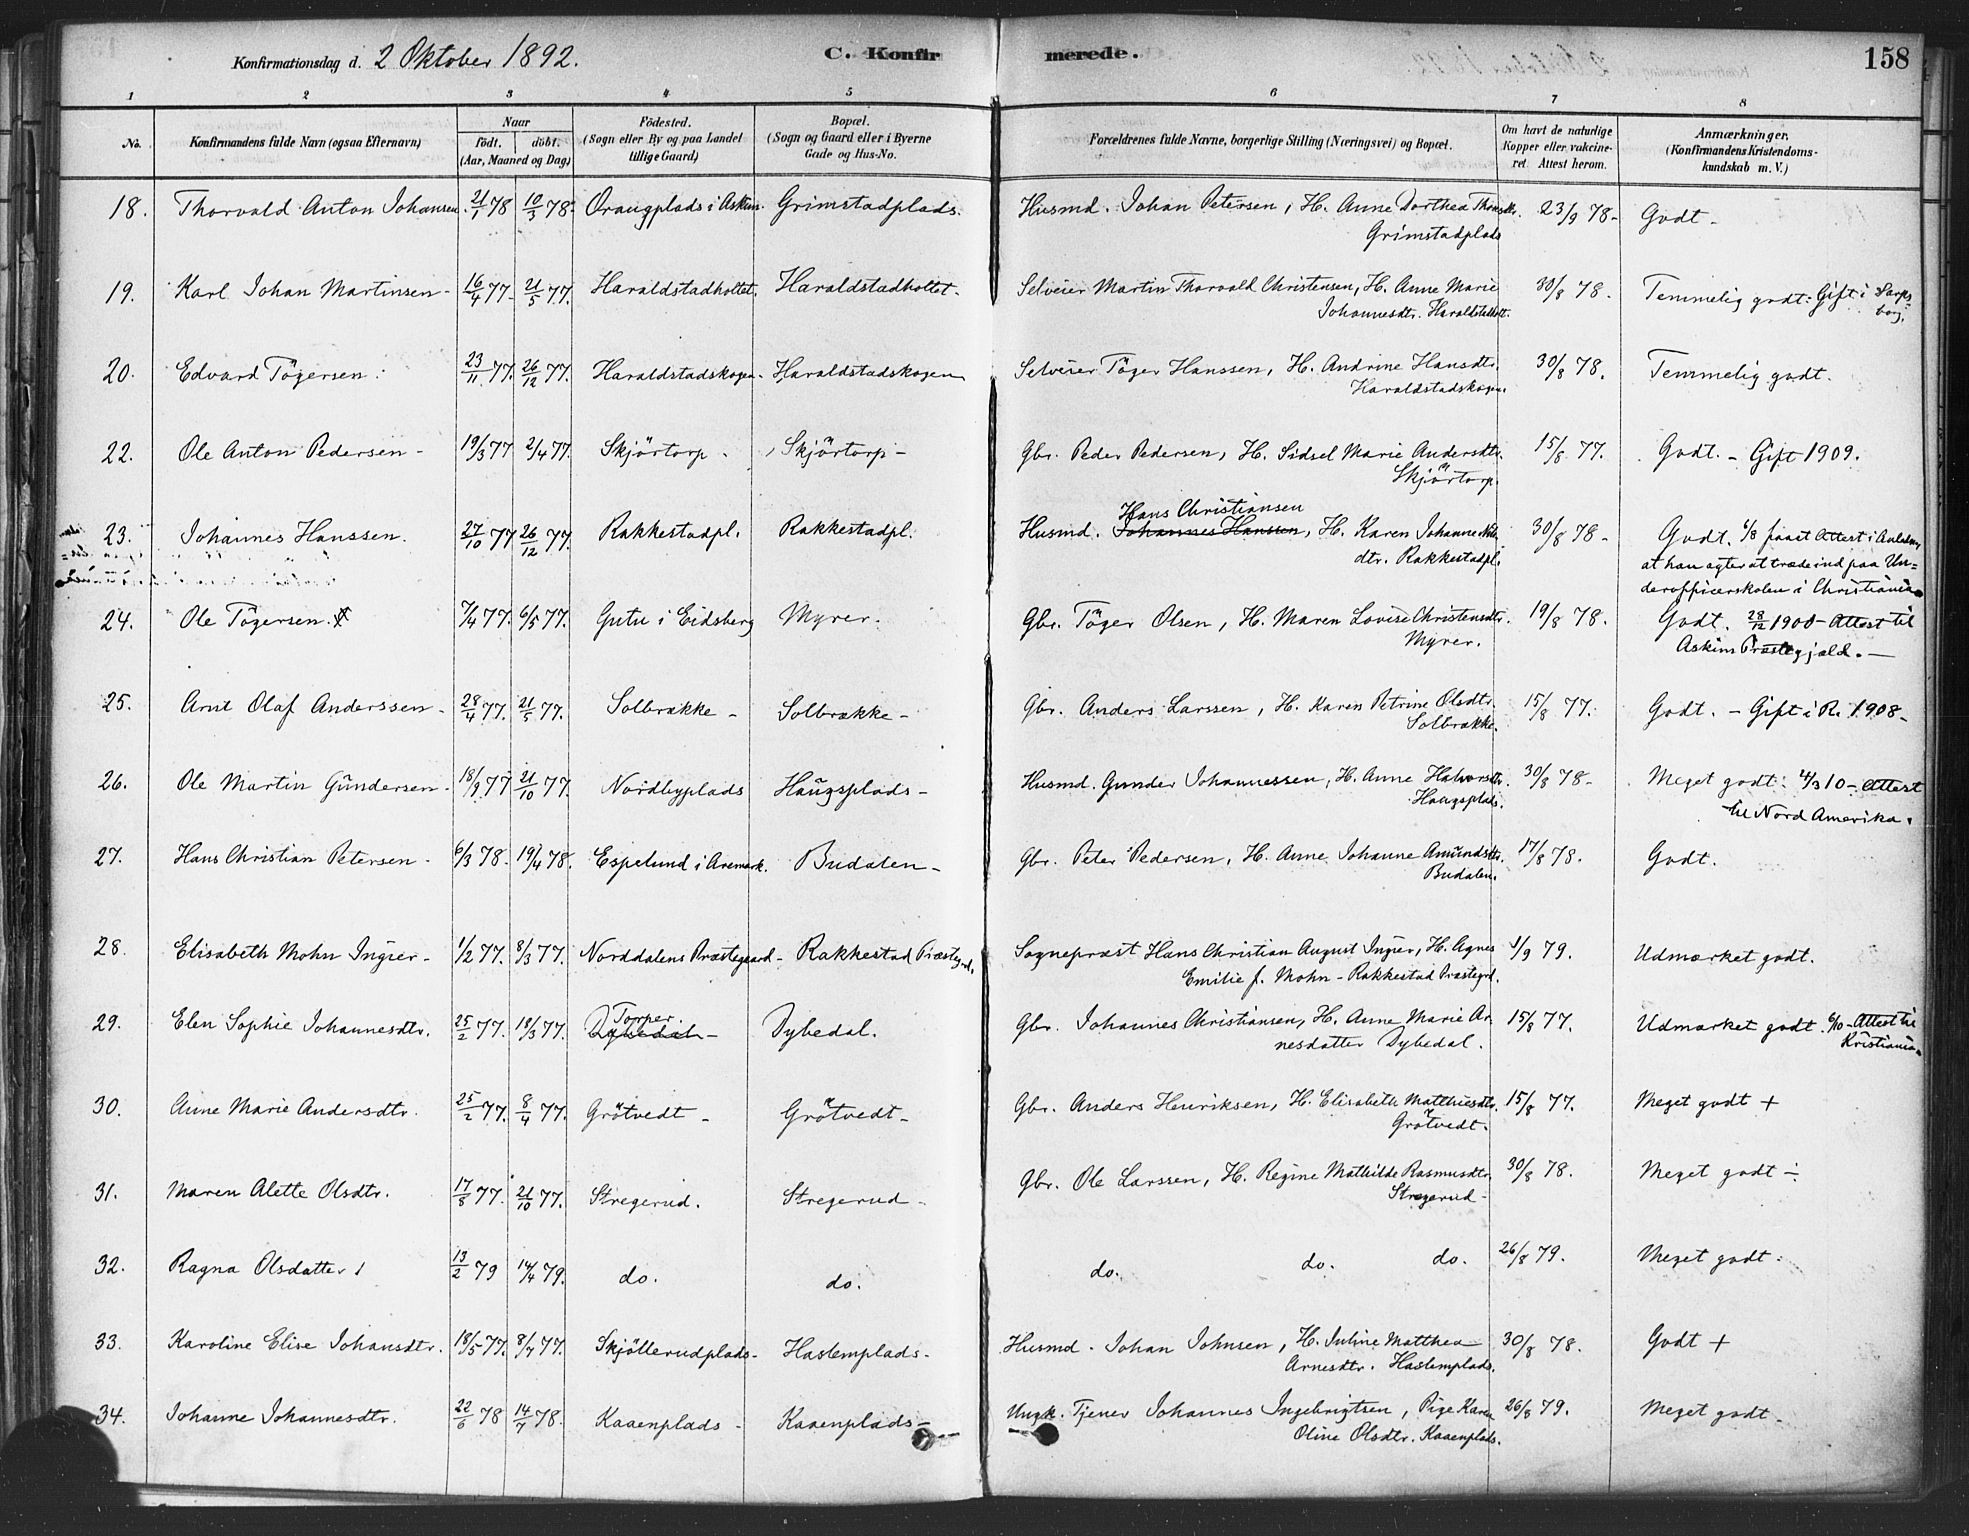 Konfirmationsdag d. 2 Oktober 1892. C. Konfirmerede. 158
1 2 3 4 5 6 7 8
No. Konfirmandens fulde Navn (ogsaa Efternavn) Naar födt. döbt. (Aar, Maaned og Dag) Födested. (Sogn eller By og paa Landet tillige Gaard) Bopæl. (Sogn og Gaard eller i Byerne Gade og Hus-No. Forældrenes fulde Navne, borgerlige Stilling (Næringsvei) og Bopæl. Om havt de naturlige Kopper eller vakcineret. Attest herom. Anmærkninger. (Konfirmandens Kristendomskundskab m. V.)
18. Thorvald Anton Johansen. 21/1 78 10/3 78. Oraugplads i Askim. Grimstadplads. Husmd. Johan Petersen, H. Anne Dorthea Thoresdtr. 23/9 78 - Godt -
Grimstadplads
19. Karl Johan Martinsen - 16/4 77. 21/5 77. Haraldstadholtet. Haraldstadholtet. Selveier Martin Thorvald Christensen, H. Anne Marie 30/8 78. Temmelig godt. Gift i Sarpsborg.
Johannesdtr. Haraldstadholt.
20. Edvard Tögersen. 23/11 77. 26/12 77. Haraldstadskogen - Haraldstadskogen Selveier Töger Hanssen, H. Andrine Hansdtr. 30/8 78. Temmelig godt.
Haraldstadskogen.
22. Ole Anton Pedersen - 19/3 77 2/4 77. Skjörtorp - Skjörtorp - Gbr. Peder Pedersen, H. Sidsel Marie Andersdtr. 15/8 77. Godt. - Gift 1909.
Skjörtorp.
Hans Christiansen
23. Johannes Hanssen. 27/10 77 26/12 77. Rakkestadpl. Rakkestadpl. Husmd. Johannes Hanssen, H. Karen Johanne Nilsdtr. Rakkestadpl. 30/8 78 - Godt. 6/8 faaet Attest i Anledn.
at han agter at træde ind paa Un=
derofficerskolen i Christiania.
24. Ole Tögersen. 7/4 77. 6/5 77. Gutu i Eidsberg Myrer. Gbr. Töger Olsen, H. Maren Lovise Christensdtr. 19/8 78. Godt. 28/12 1900 - Attest til
Myrer. Askim Præstegjæld. -
25. Arnt Olaf Anderssen - 28/4 77. 21/5 77. Solbrække - Solbrække - Gbr. Anders Larssen, H. Karen Petrine Olsdtr. 15/8 77. Godt. - Gift i R. 1908 -
Solbrække.
26. Ole Martin Gundersen - 18/9 77 21/10 77. Nordbyplads Haugsplads - Husmd. Gunder Johannessen, H. Anne Halvorsdtr. 30/8 78 - Meget godt. 4/3 10 - Attest
Haugsplads. til Nord Amerika.
27. Hans Christian Petersen - 6/3 78. 19/4 78. Espelund i Aremark. Budalen - Gbr. Peter Pedersen, H. Anne Johanne Amundsdtr. 17/8 78. Godt.
Budalen.
28. Elisabeth Mohn Ingier - 1/2 77. 8/3 77. Norddalens Præstegaard - Rakkestad Præstegrd. Sognepræst Hans Christian August Ingier, H. Agnes 1/9 79. Udmærket godt.
Emilie f. Mohn - Rakkestad Præstegrd.
Torper.
29. Elen Sophie Johannesdtr. 25/2 77. 18/3 77. Dybedal - Dybedal. Gbr. Johannes Christiansen, H. Anne Marie Ar- 15/8 77. Udmærket godt. 6/10 - Attest til
nesdatter Dybedal. Kristiania.
30. Anne Marie Andersdtr. 25/2 77. 8/4 77. Grötvedt - Grötvedt - Gbr. Anders Henriksen, H. Elisabeth Matthiesdtr. 15/8 77. Meget godt +
Grötvedt.
31. Maren Alette Olsdtr. 17/8 77. 21/10 77. Stregerud. Stregerud - Gbr. Ole Larssen, H. Regine Mathilde Rasmusdtr. 30/8 78. Meget godt ÷
Stregerud -
32. Ragna Olsdatter 13/2 79 14/4 79. do. do. do. do. do. 26/8 79. Meget godt.
33. Karoline Elise Johansdtr. 18/5 77. 8/7 77. Skjöllerudplads - Haslemplads - Husmd. Johan Johnsen, H. Juline Matthea 30/8 78. Godt +
Arnesdtr. Haslemplads.
34. Johanne Johannesdtr. 22/6 78 14/7 78. Kaaenplads - Kaaenplads - Ungk. Tjener Johannes Ingebrigtsen, Pige Karen 26/8 79. Meget godt -
Oline Olsdtr. Kaaenplads.